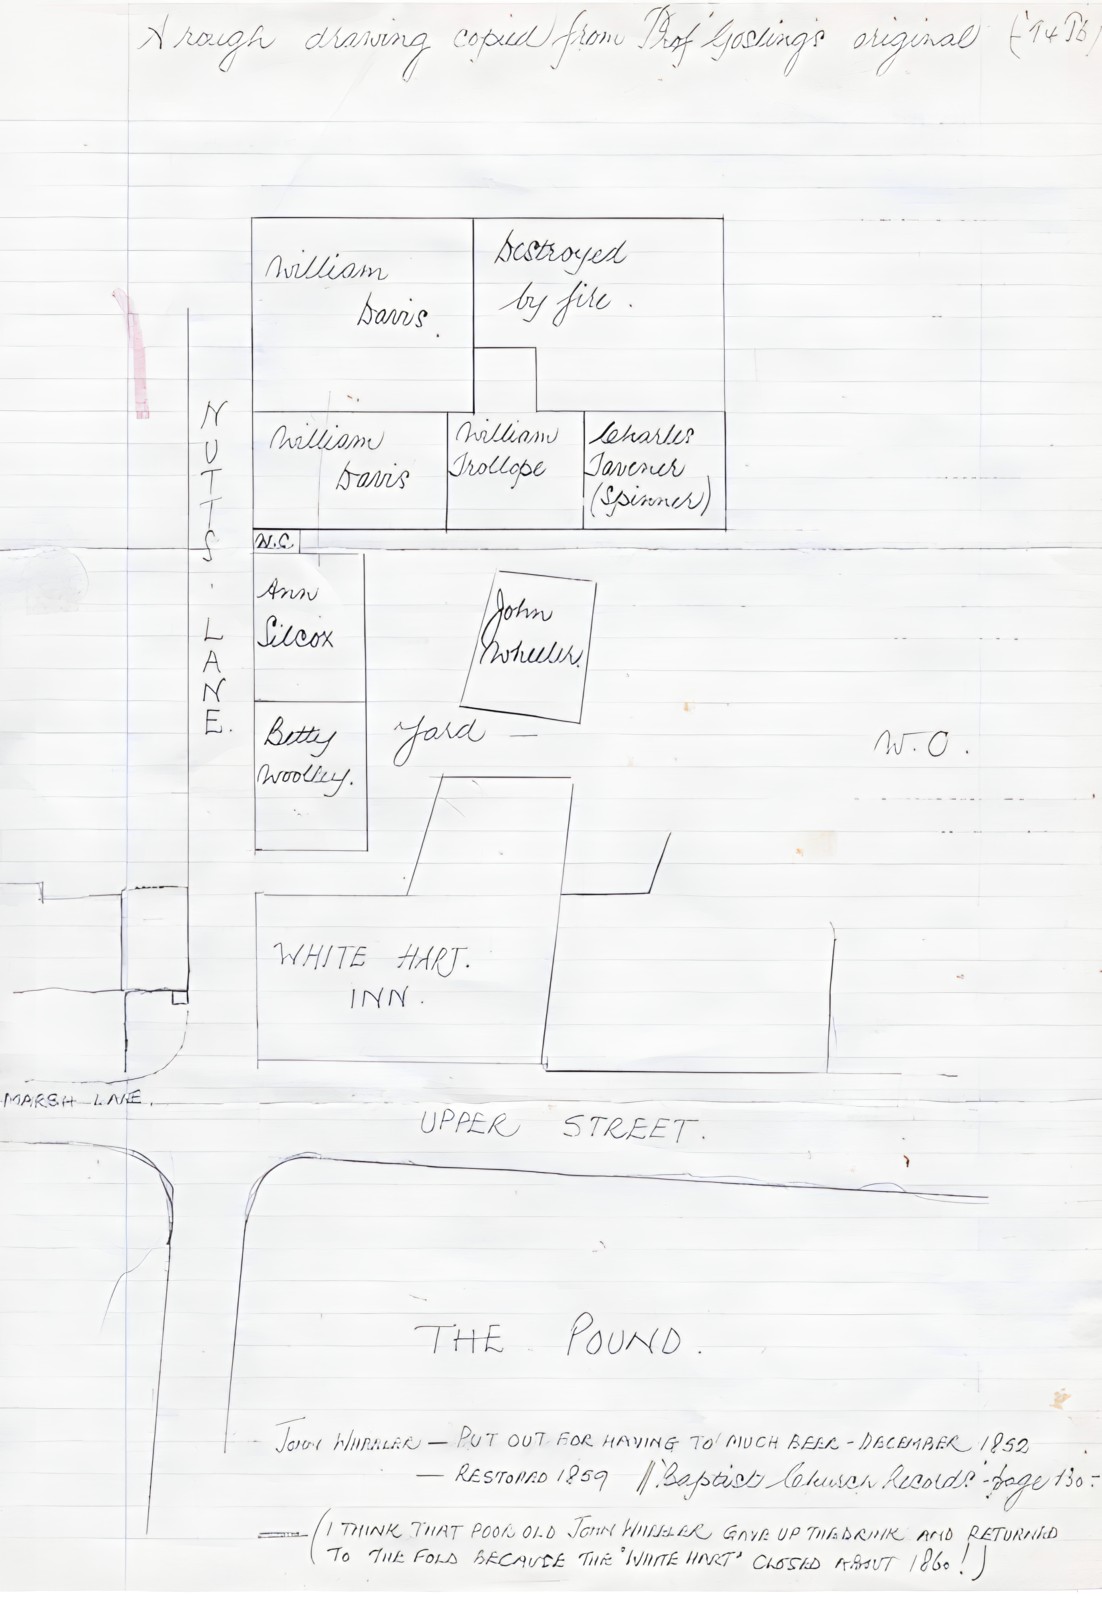 A rough drawing copied from 'Prof' Gosling's original
William
Davis.
Destroyed
by fire.
William
Davis
William
Trollope
Charles
Tavener
(Spinner)
NUTTS. LANE.
W.C.
Ann
Silcox
John
Wheeler.
Betty
Woolley.
Yard —
W.C.
WHITE HART.
INN.
MARSH LANE.
UPPER STREET.
THE POUND.
JOHN WHEELER — PUT OUT FOR HAVING TO MUCH BEER - DECEMBER 1852
— RESTORED 1859 "Baptist Church Records" - page 130 -
(I THINK THAT POOR OLD JOHN WHEELER GAVE UP THE DRINK AND RETURNED
TO THE FOLD BECAUSE THE 'WHITE HART' CLOSED ABOUT 1860!)